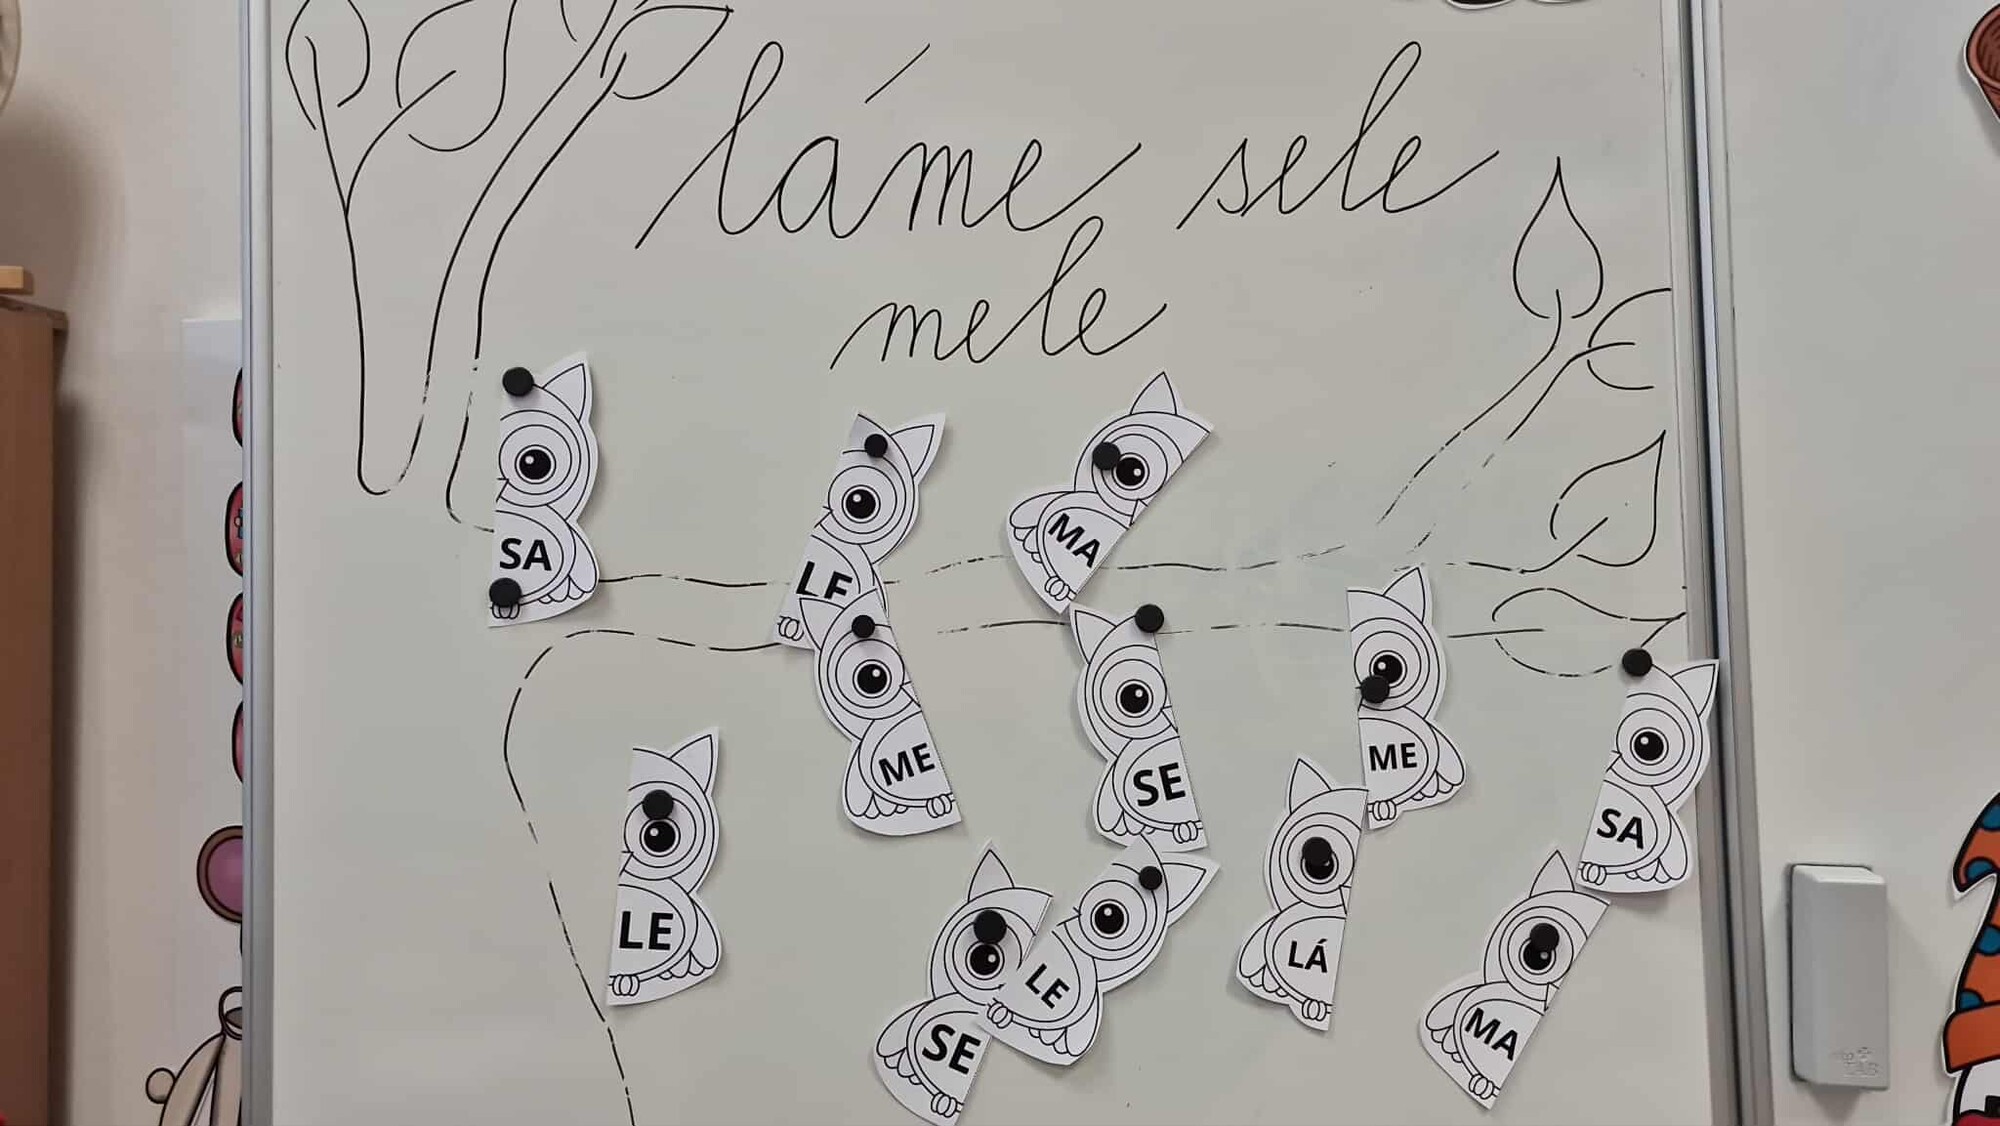 láme sele
mele
SA
LE
MA
ME
SE
ME
SA
LE
SE
LE
LÁ
MA